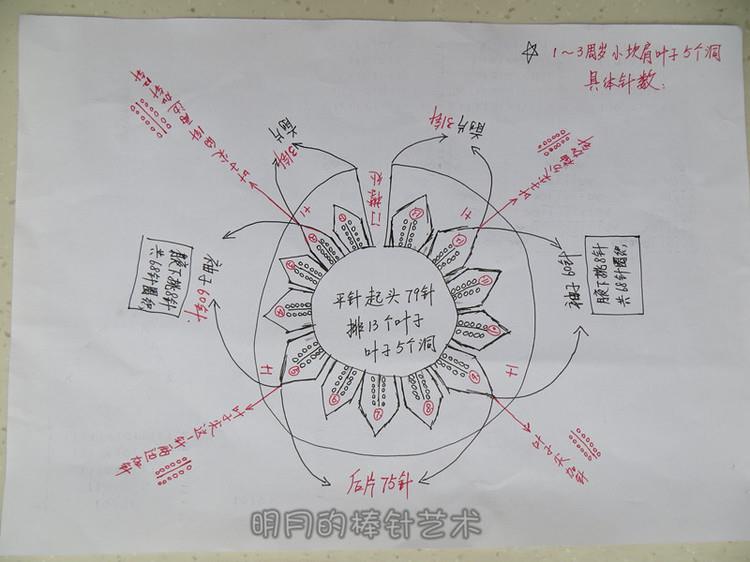 ☆ 1～3周岁小坎肩叶子5个洞
具体针数:
前片
31针
前片31针
门襟处
+1
+1
平针起头79针
排13个叶子
叶子5个洞
袖子60针
腋下挑8针
共68针圈织
袖子60针
腋下挑8针
共68针圈织
+1
+1
叶子尖这一针两边加针
后片75针
明月的棒针艺术